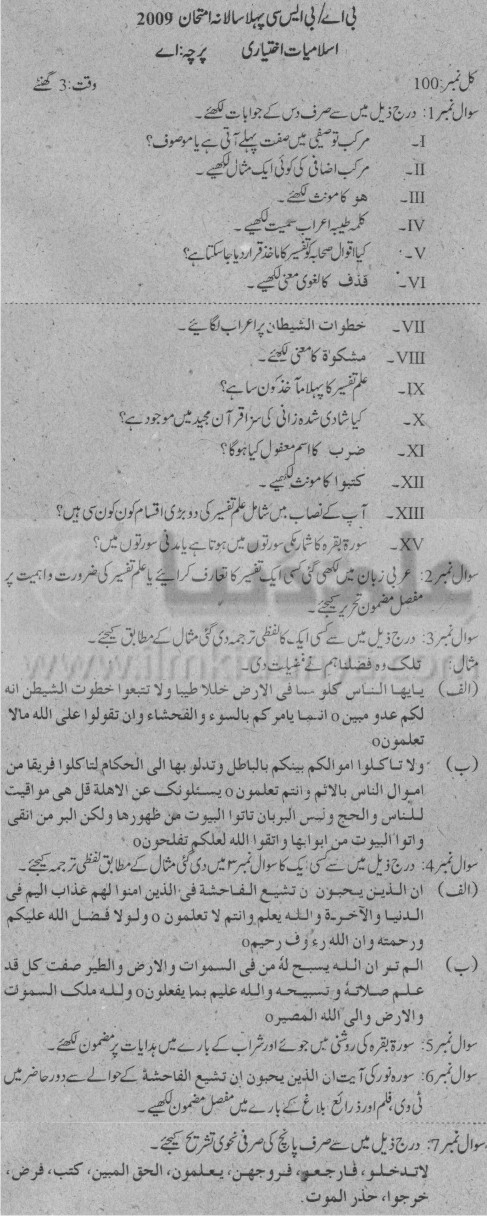 بی اے/بی ایس سی پہلا سالانہ امتحان 2009
اسلامیات اختیاری پرچہ: اے
کل نمبر: 100 وقت: 3 گھنٹے
سوال نمبر1: درج ذیل میں سے صرف دس کے جوابات لکھئے۔
I۔ مرکب توصیفی میں صفت پہلے آتی ہے یا موصوف؟
II۔ مرکب اضافی کی کوئی ایک مثال لکھیے۔
III۔ هو کا مونث لکھئے۔
IV۔ کلمہ طیبہ اعراب سمیت لکھیے۔
V۔ کیا اقوال صحابہ کو تفسیر کا ماخذ قرار دیا جا سکتا ہے؟
VI۔ قذف کا لغوی معنی لکھیے۔
VII۔ خطوات الشیطان پر اعراب لگائیے۔
VIII۔ مشکوة کا معنی لکھئے۔
IX۔ علم تفسیر کا پہلا مآخذ کون سا ہے؟
X۔ کیا شادی شدہ زانی کی سزا قرآن مجید میں موجود ہے؟
XI۔ ضرب کا اسم مفعول کیا ہوگا؟
XII۔ کتبوا کا مونث لکھیے۔
XIII۔ آپ کے نصاب میں شامل علم تفسیر کی دو بڑی اقسام کون کون سی ہیں؟
XV۔ سورۃ بقرہ کا شمار مکی سورتوں میں ہوتا ہے یا مدنی سورتوں میں؟
سوال نمبر2: عربی زبان میں لکھی گئی کسی ایک تفسیر کا تعارف کرائیے یا علم تفسیر کی ضرورت و اہمیت پر
مفصل مضمون تحریر کیجئے۔
سوال نمبر3: درج ذیل میں سے کسی ایک کا لفظی ترجمہ دی گئی مثال کے مطابق کیجئے۔
مثال: تلک وہ فضلنا ہم نے فضیلت دی۔
(الف) یایها الناس کلوا مما فی الارض حللا طیبا ولا تتبعوا خطوت الشیطن انه
لکم عدو مبین o انما یامرکم بالسوء والفحشاء وان تقولوا علی الله مالا
تعلمون o
(ب) ولا تاکلوا اموالکم بینکم بالباطل وتدلوا بها الی الحکام لتاکلوا فریقا من
اموال الناس بالاثم وانتم تعلمون o یسئلونک عن الاهلة قل هی مواقیت
للناس والحج ولیس البر بان تاتوا البیوت من ظهورها ولکن البر من اتقی
واتوا البیوت من ابوابها واتقوا الله لعلکم تفلحون o
سوال نمبر4: درج ذیل میں سے کسی ایک کا سوال نمبر ۳ میں دی گئی مثال کے مطابق لفظی ترجمہ کیجئے۔
(الف) ان الذین یحبون ان تشیع الفاحشة فی الذین امنوا لهم عذاب الیم فی
الدنیا والآخرة والله یعلم وانتم لا تعلمون o ولولا فضل الله علیکم
ورحمته وان الله رءوف رحیم o
(ب) الم تر ان الله یسبح لهٗ من فی السموات والارض والطیر صفت کل قد
علم صلاتهٗ و تسبیحه والله علیم بما یفعلون o ولله ملک السموٰت
والارض والی الله المصیر o
سوال نمبر5: سورۃ بقرہ کی روشنی میں جوئے اور شراب کے بارے میں ہدایات پر مضمون لکھئے۔
سوال نمبر6: سورہ نور کی آیت ان الذین یحبون ان تشیع الفاحشة کے حوالے سے دور حاضر میں
ٹی وی، فلم اور ذرائع ابلاغ کے بارے میں مفصل مضمون لکھیے۔
سوال نمبر7: درج ذیل میں سے صرف پانچ کی صرفی نحوی تشریح کیجئے۔
لا تدخلوا، فارجعوا، فروجهن، یعلمون، الحق المبین، کتب، فرض،
خرجوا، حذر الموت۔
علم کی دنیا